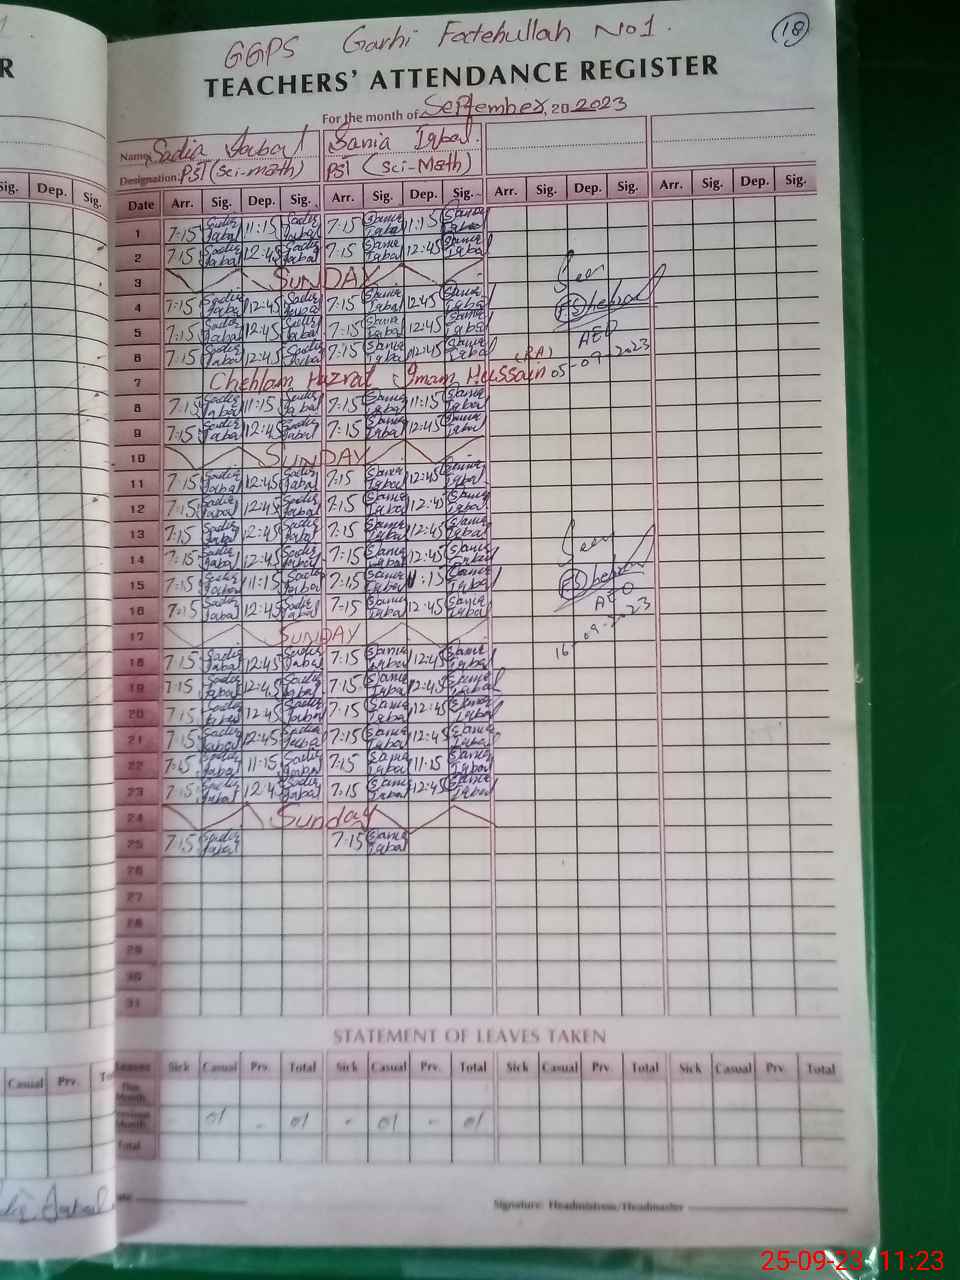 18
GGPS Garhi Fatehullah No 1.
TEACHERS' ATTENDANCE REGISTER
For the month of September, 20 2023
Name Sadia Iqbal Sania Iqbal.
Designation: PST (Sci-math) PST (Sci-Math)
Date Arr. Sig. Dep. Sig. Arr. Sig. Dep. Sig. Arr. Sig. Dep. Sig. Arr. Sig. Dep. Sig.
1 7:15 Sadia Iqbal 11:15 Sadia Iqbal 7:15 Sania Iqbal 11:15 Sania Iqbal
2 7:15 Sadia Iqbal 12:45 Sadia Iqbal 7:15 Sania Iqbal 12:45 Sania Iqbal
3 SUNDAY
4 7:15 Sadia Iqbal 12:45 Sadia Iqbal 7:15 Sania Iqbal 12:45 Sania Iqbal
5 7:15 Sadia Iqbal 12:45 Sadia Iqbal 7:15 Sania Iqbal 12:45 Sania Iqbal
6 7:15 Sadia Iqbal 12:45 Sadia Iqbal 7:15 Sania Iqbal 12:45 Sania Iqbal
7 Chehlam Hazrat Imam Hussain (RA)
Seen
AEO
05-09-2023
8 7:15 Sadia Iqbal 11:15 Sadia Iqbal 7:15 Sania Iqbal 11:15 Sania Iqbal
9 7:15 Sadia Iqbal 12:45 Sadia Iqbal 7:15 Sania Iqbal 12:45 Sania Iqbal
10 SUNDAY
11 7:15 Sadia Iqbal 12:45 Sadia Iqbal 7:15 Sania Iqbal 12:45 Sania Iqbal
12 7:15 Sadia Iqbal 12:45 Sadia Iqbal 7:15 Sania Iqbal 12:45 Sania Iqbal
13 7:15 Sadia Iqbal 12:45 Sadia Iqbal 7:15 Sania Iqbal 12:45 Sania Iqbal
14 7:15 Sadia Iqbal 12:45 Sadia Iqbal 7:15 Sania Iqbal 12:45 Sania Iqbal
15 7:15 Sadia Iqbal 11:15 Sadia Iqbal 7:15 Sania Iqbal 11:15 Sania Iqbal
16 7:15 Sadia Iqbal 12:45 Sadia Iqbal 7:15 Sania Iqbal 12:45 Sania Iqbal
Seen
AEO
16-09-2023
17 SUNDAY
18 7:15 Sadia Iqbal 12:45 Sadia Iqbal 7:15 Sania Iqbal 12:45 Sania Iqbal
19 7:15 Sadia Iqbal 12:45 Sadia Iqbal 7:15 Sania Iqbal 12:45 Sania Iqbal
20 7:15 Sadia Iqbal 12:45 Sadia Iqbal 7:15 Sania Iqbal 12:45 Sania Iqbal
21 7:15 Sadia Iqbal 12:45 Sadia Iqbal 7:15 Sania Iqbal 12:45 Sania Iqbal
22 7:15 Sadia Iqbal 11:15 Sadia Iqbal 7:15 Sania Iqbal 11:15 Sania Iqbal
23 7:15 Sadia Iqbal 12:45 Sadia Iqbal 7:15 Sania Iqbal 12:45 Sania Iqbal
24 Sunday
25 7:15 Sadia Iqbal 7:15 Sania Iqbal
26
27
28
29
30
31
STATEMENT OF LEAVES TAKEN
Leaves Sick Casual Prv. Total Sick Casual Prv. Total Sick Casual Prv. Total Sick Casual Prv. Total
This Month
Previous Month - 01 - 01 - 01 - 01
Total
Signature: Headmistress/Headmaster
R
Sig. Dep. Sig.
Casual Prv.
25-09-23 11:23